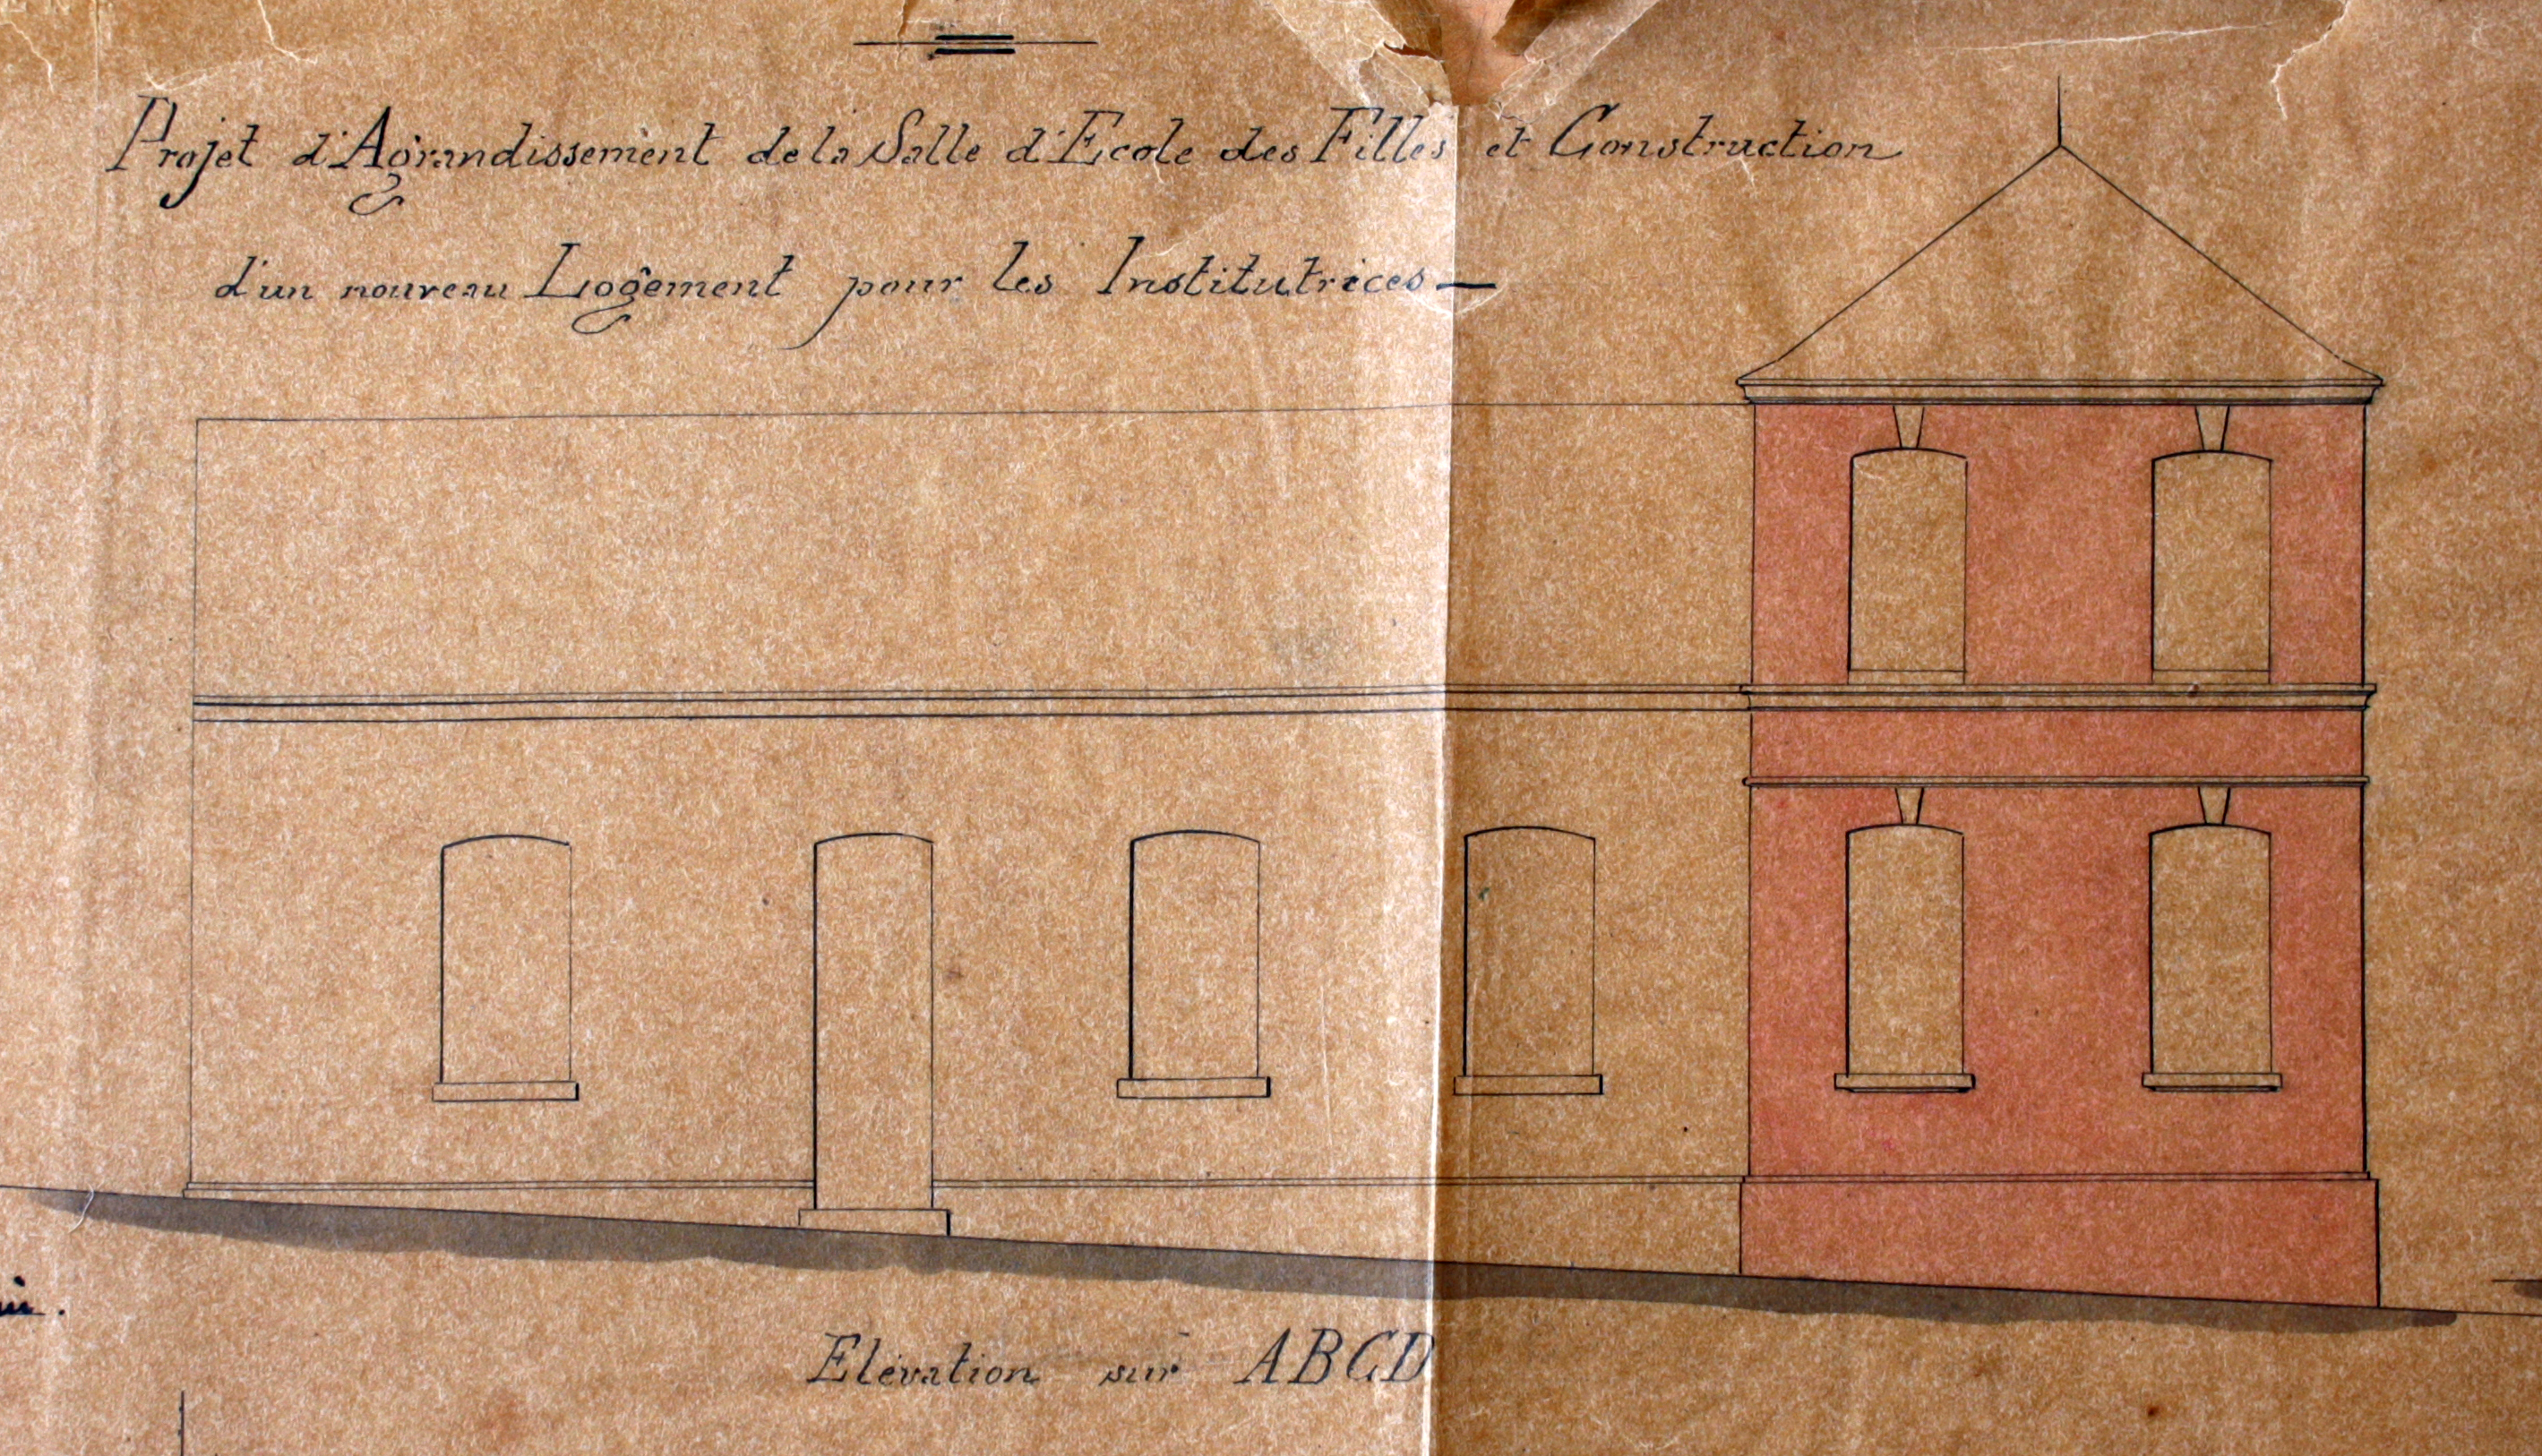 Projet d'Agrandissement de la Salle d'Ecole des Filles et Construction
d'un nouveau Logement pour les Institutrices —
Elévation sur ABCD